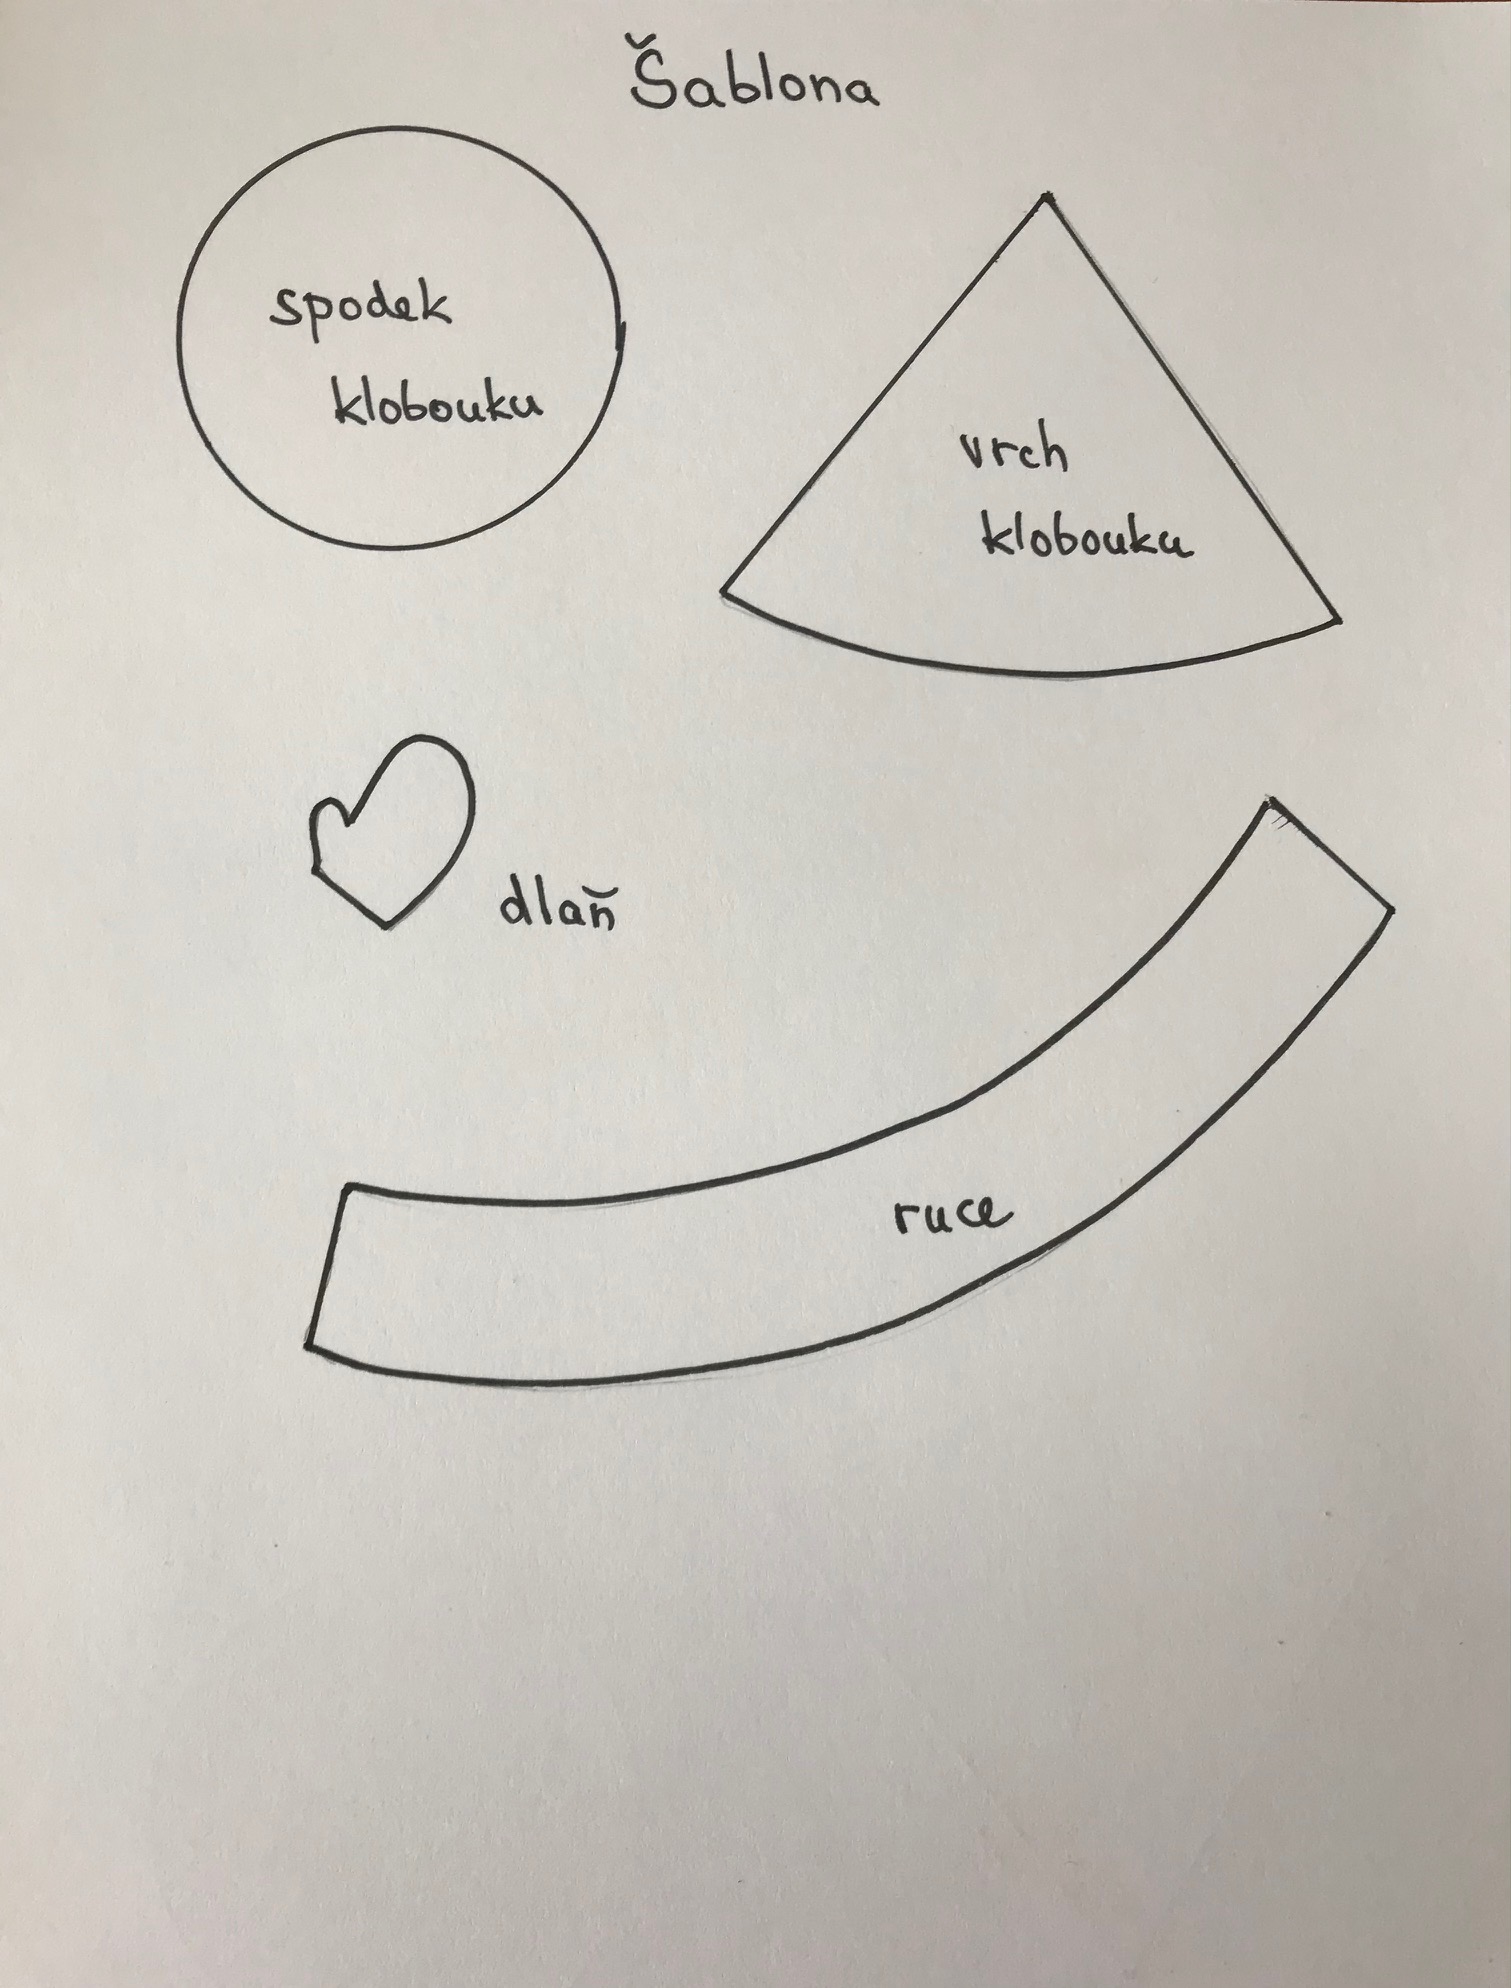 Šablona
spodek
klobouku
vrch
klobouku
dlaň
ruce